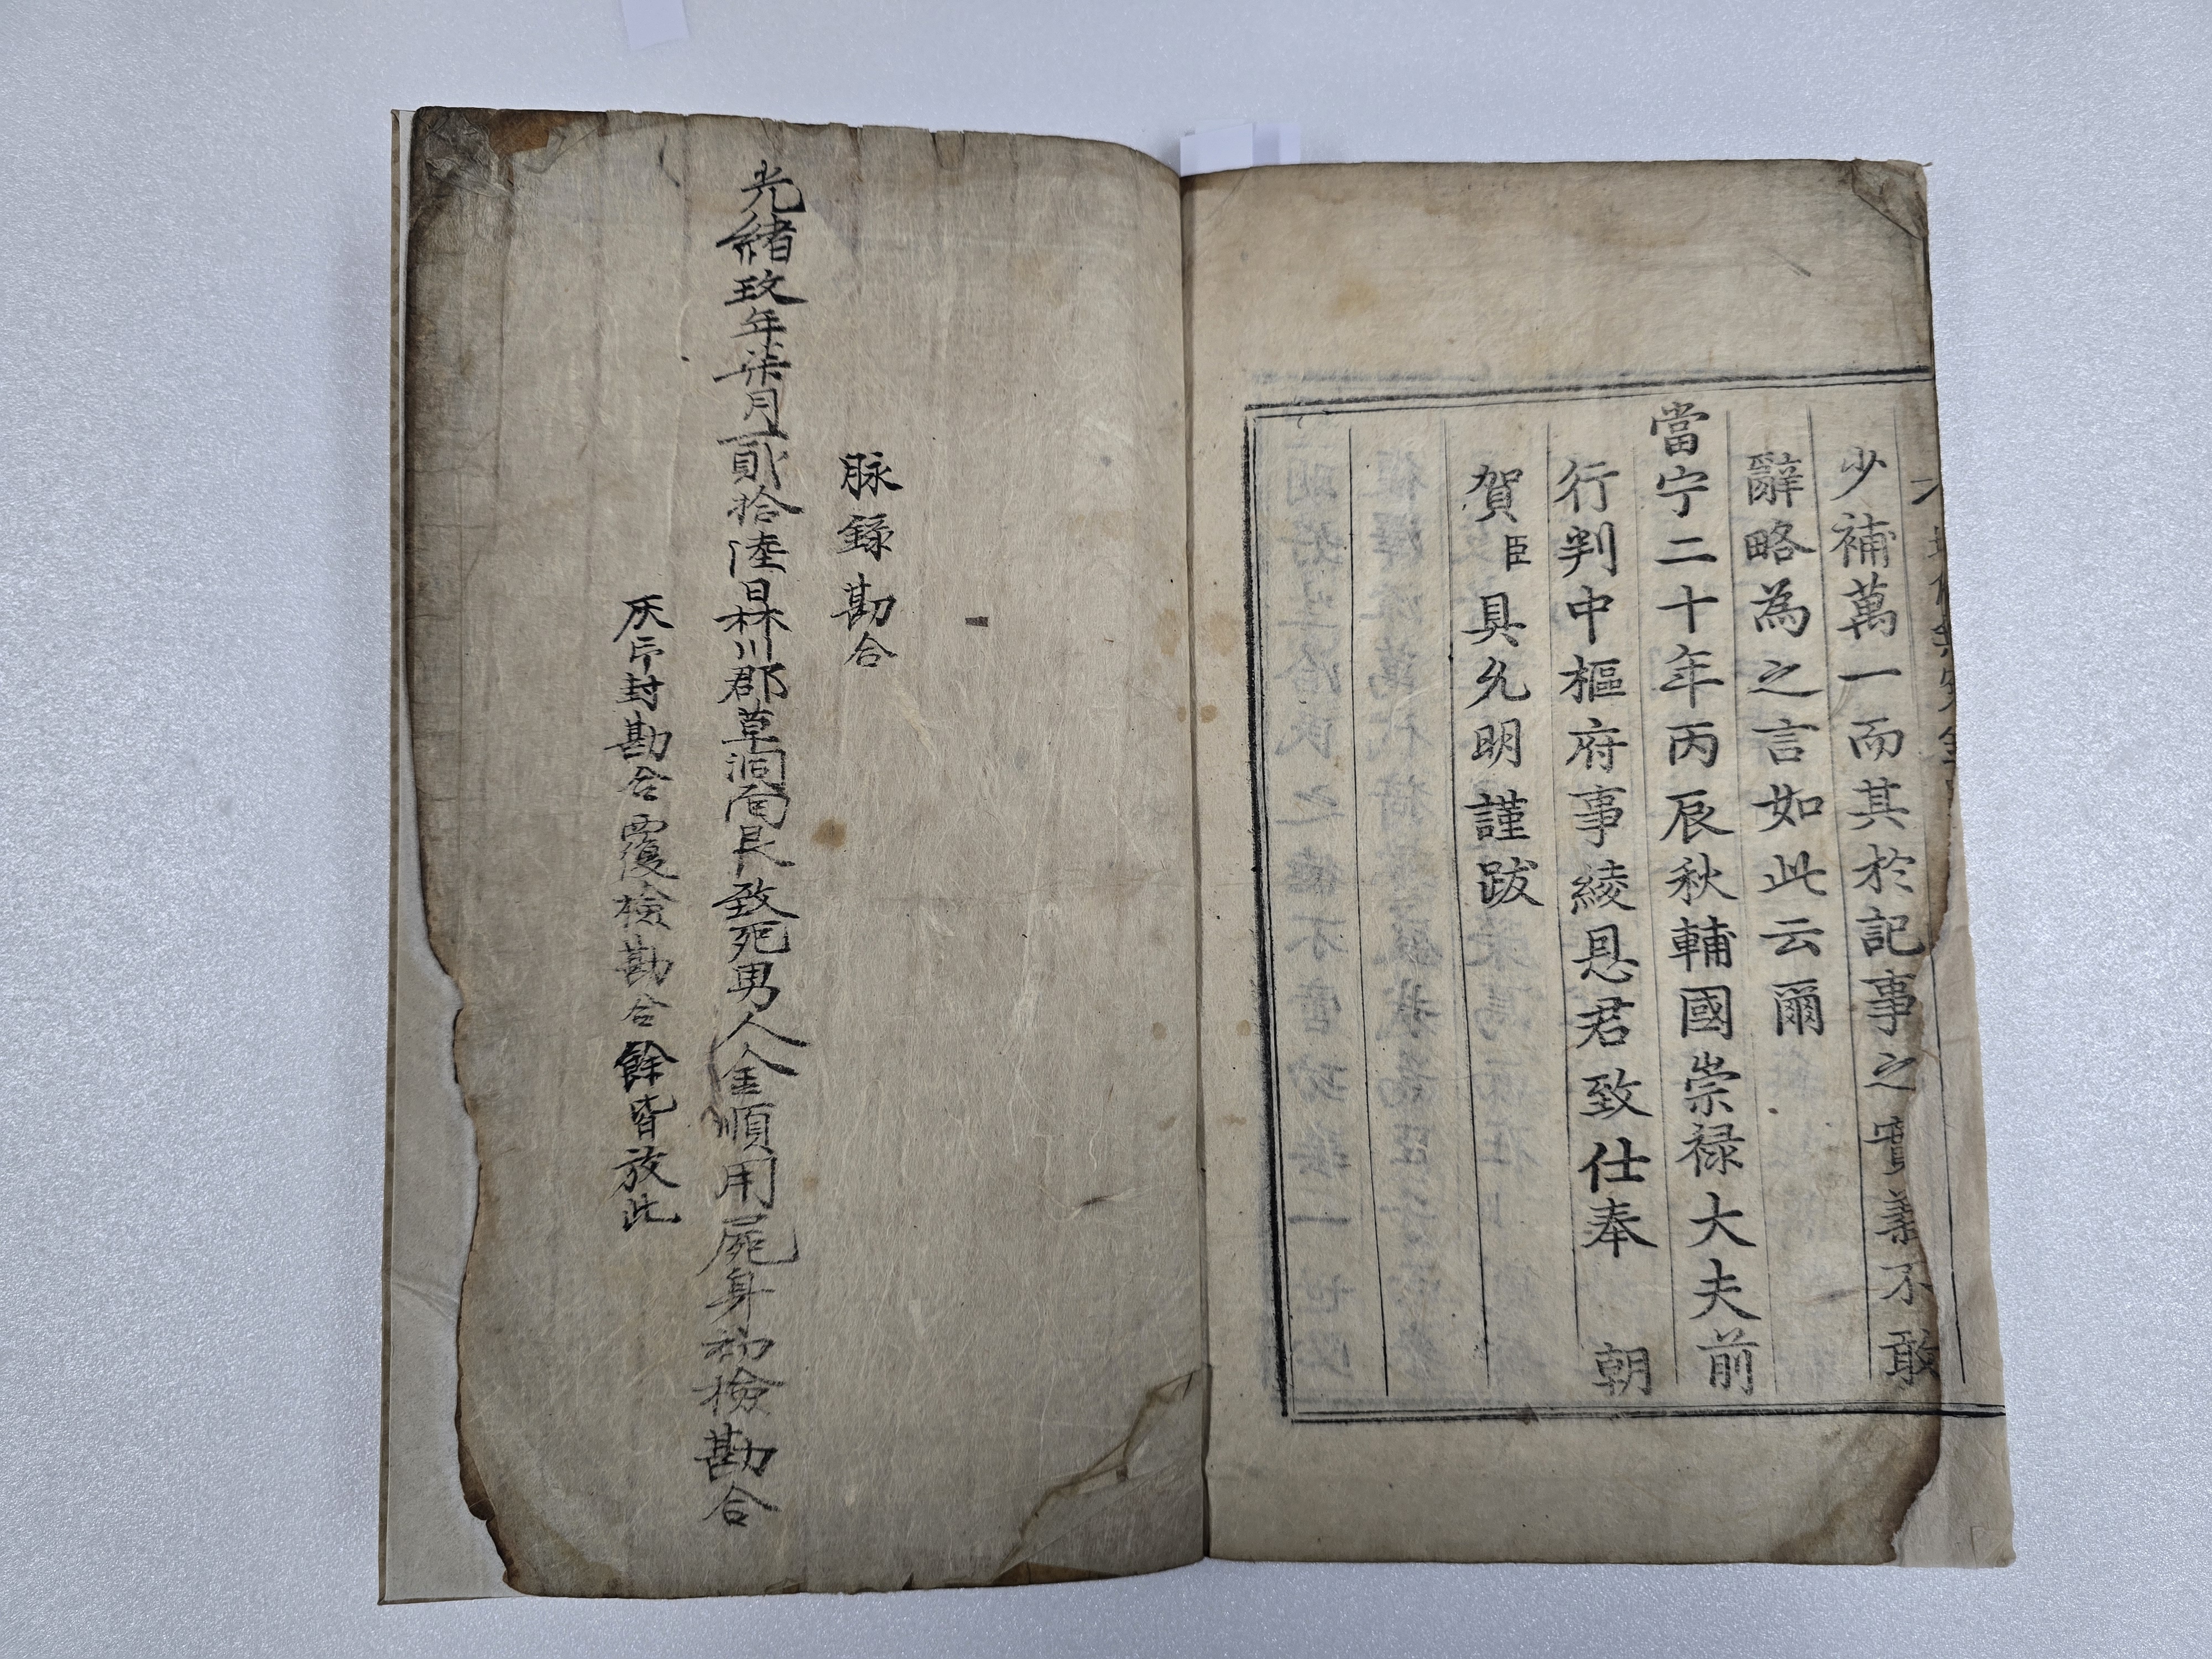 少補萬一而其於記事之實義不敢
辭略為之言如此云爾
當宁二十年丙辰秋輔國崇禄大夫前
行判中樞府事綾恩君致仕奉 朝
賀臣具允明謹跋
脉錄勘合
光緒玖年柒月貳拾陸日森川郡草洞面民致死男人金順用屍身初檢勘合
灰印封勘合覆檢勘合餘皆放此